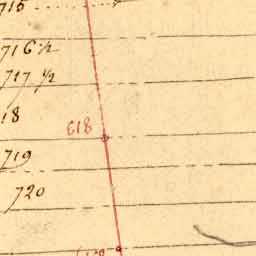 715
716 1/2
717 1/2
18
618
719
720